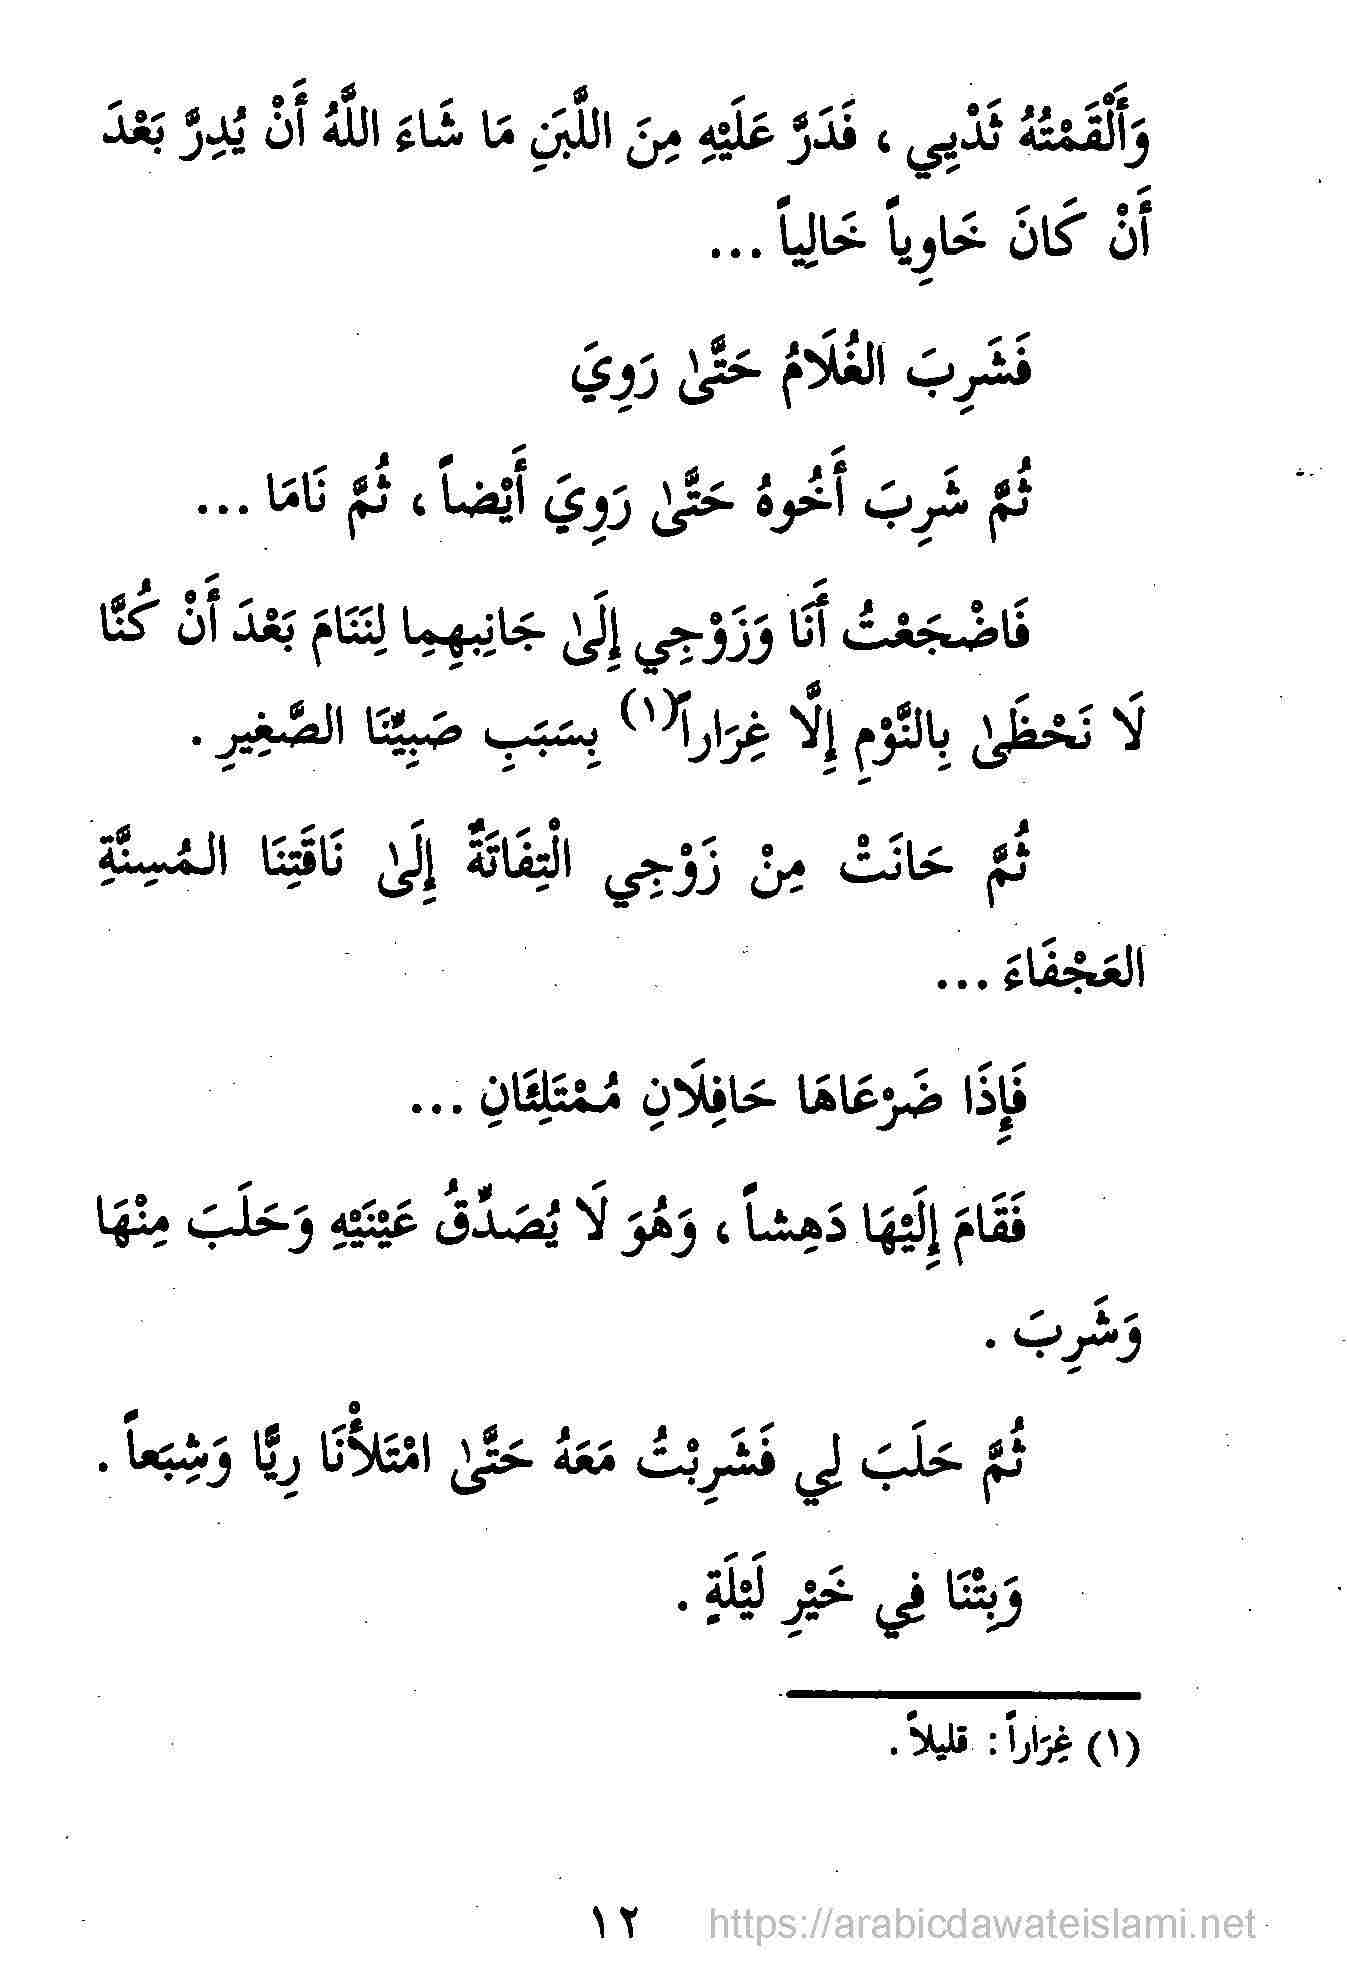 وَأَلْقَمْتُهُ ثَدْيِي ، فَدَرَّ عَلَيْهِ مِنَ اللَّبَنِ مَا شَاءَ اللَّهُ أَنْ يُدِرَّ بَعْدَ
أَنْ كَانَ خَاوِياً خَالِياً ...
فَشَرِبَ الغُلَامُ حَتَّىٰ رَوِيَ
ثُمَّ شَرِبَ أَخُوهُ حَتَّىٰ رَوِيَ أَيْضاً ، ثُمَّ نَامَا ...
فَاضْجَعْتُ أَنَا وَزَوْجِي إِلَىٰ جَانِبِهِمِا لِنَنَامَ بَعْدَ أَنْ كُنَّا
لَا نَحْظَىٰ بِالنَّوْمِ إِلَّا غِرَاراً(١) بِسَبَبِ صَبِيِّنَا الصَّغِيرِ .
ثُمَّ حَانَتْ مِنْ زَوْجِي الْتِفَاتَةٌ إِلَىٰ نَاقَتِنَا المُسِنَّةِ
العَجْفَاءَ ...
فَإِذَا ضَرْعَاهَا حَافِلَانِ مُمْتَلِئَانِ ...
فَقَامَ إِلَيْهَا دَهِشاً ، وَهُوَ لَا يُصَدِّقُ عَيْنَيْهِ وَحَلَبَ مِنْهَا
وَشَرِبَ .
ثُمَّ حَلَبَ لِي فَشَرِبْتُ مَعَهُ حَتَّىٰ امْتَلأْنَا رِيًّا وَشِبَعاً .
وَبِتْنَا فِي خَيْرِ لَيْلَةٍ .
(١) غِرَاراً : قليلاً .
١٢
https://arabicdawateislami.net